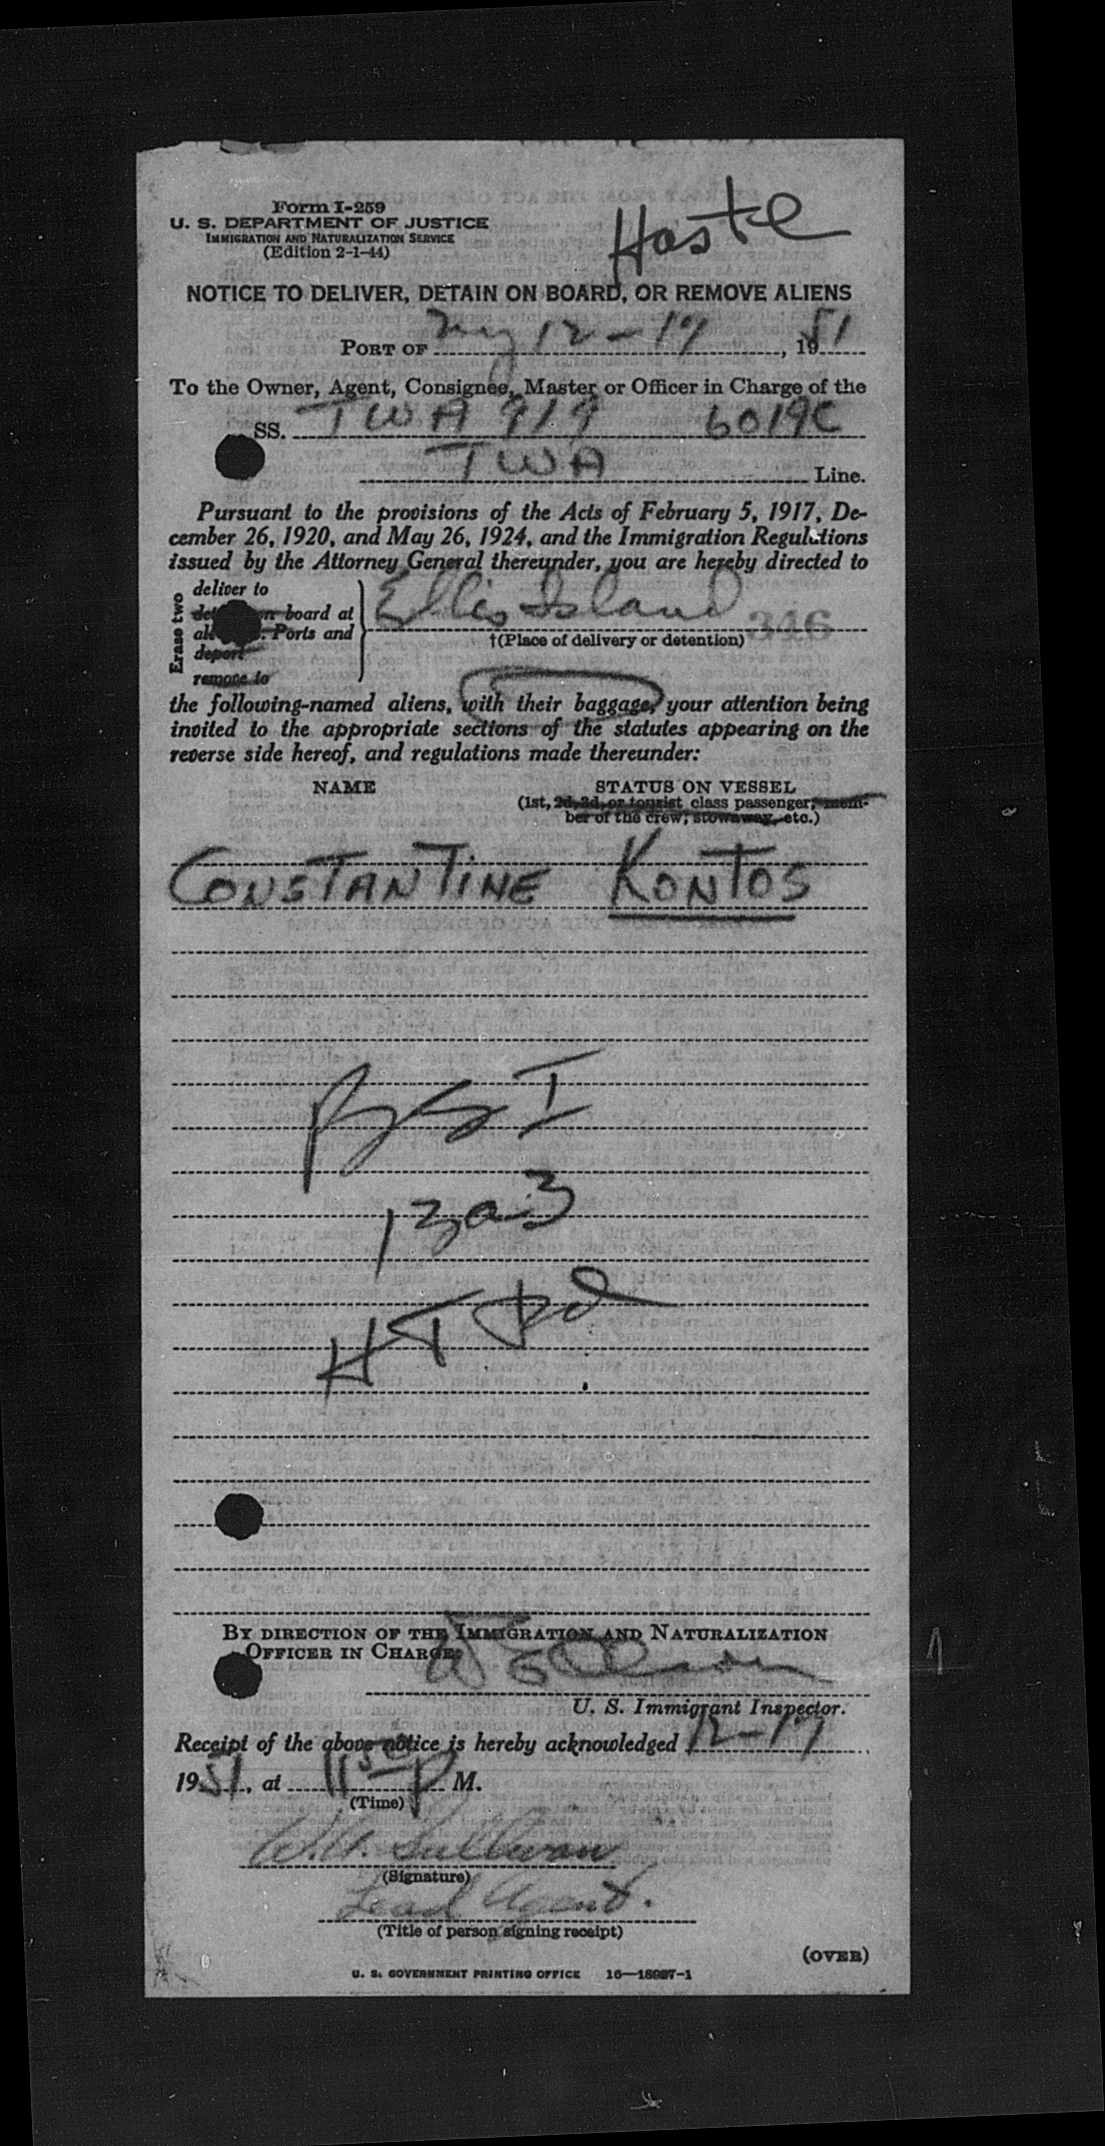 Form I-259
U. S. DEPARTMENT OF JUSTICE
IMMIGRATION AND NATURALIZATION SERVICE
(Edition 2-1-44)
NOTICE TO DELIVER, DETAIN ON BOARD, OR REMOVE ALIENS
PORT OF NY 12-17, 1951
To the Owner, Agent, Consignee, Master or Officer in Charge of the
SS. TWA 919 6019C
TWA Line.
Pursuant to the provisions of the Acts of February 5, 1917, De-
cember 26, 1920, and May 26, 1924, and the Immigration Regulations
issued by the Attorney General thereunder, you are hereby directed to
Erase two
deliver to
board at
Ports and
deport
remove to
Ellis Island
346
†(Place of delivery or detention)
the following-named aliens, with their baggage, your attention being
invited to the appropriate sections of the statutes appearing on the
reverse side hereof, and regulations made thereunder:
NAME STATUS ON VESSEL
(1st, 2d, 3d, or tourist class passenger, mem-
ber of the crew, stowaway, etc.)
CONSTANTINE KONTOS
BSI
13a3
BY DIRECTION OF THE IMMIGRATION AND NATURALIZATION
OFFICER IN CHARGE:
U. S. Immigrant Inspector.
Receipt of the above notice is hereby acknowledged 12-17
1951, at 11 50 P M.
(Time)
W. A. Sullivan
(Signature)
Lead Agent.
(Title of person signing receipt)
(OVER)
U. S. GOVERNMENT PRINTING OFFICE 16—18027-1